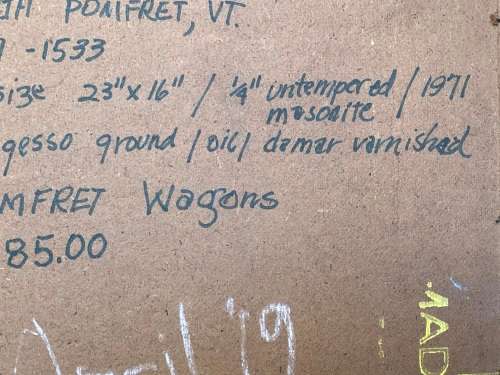 TH POMFRET, VT.
9 -1533
size 23"x16" / 1/4" untempered / 1971
masonite
gesso ground / oil / damar varnished
MFRET Wagons
85.00
April '79
MAD